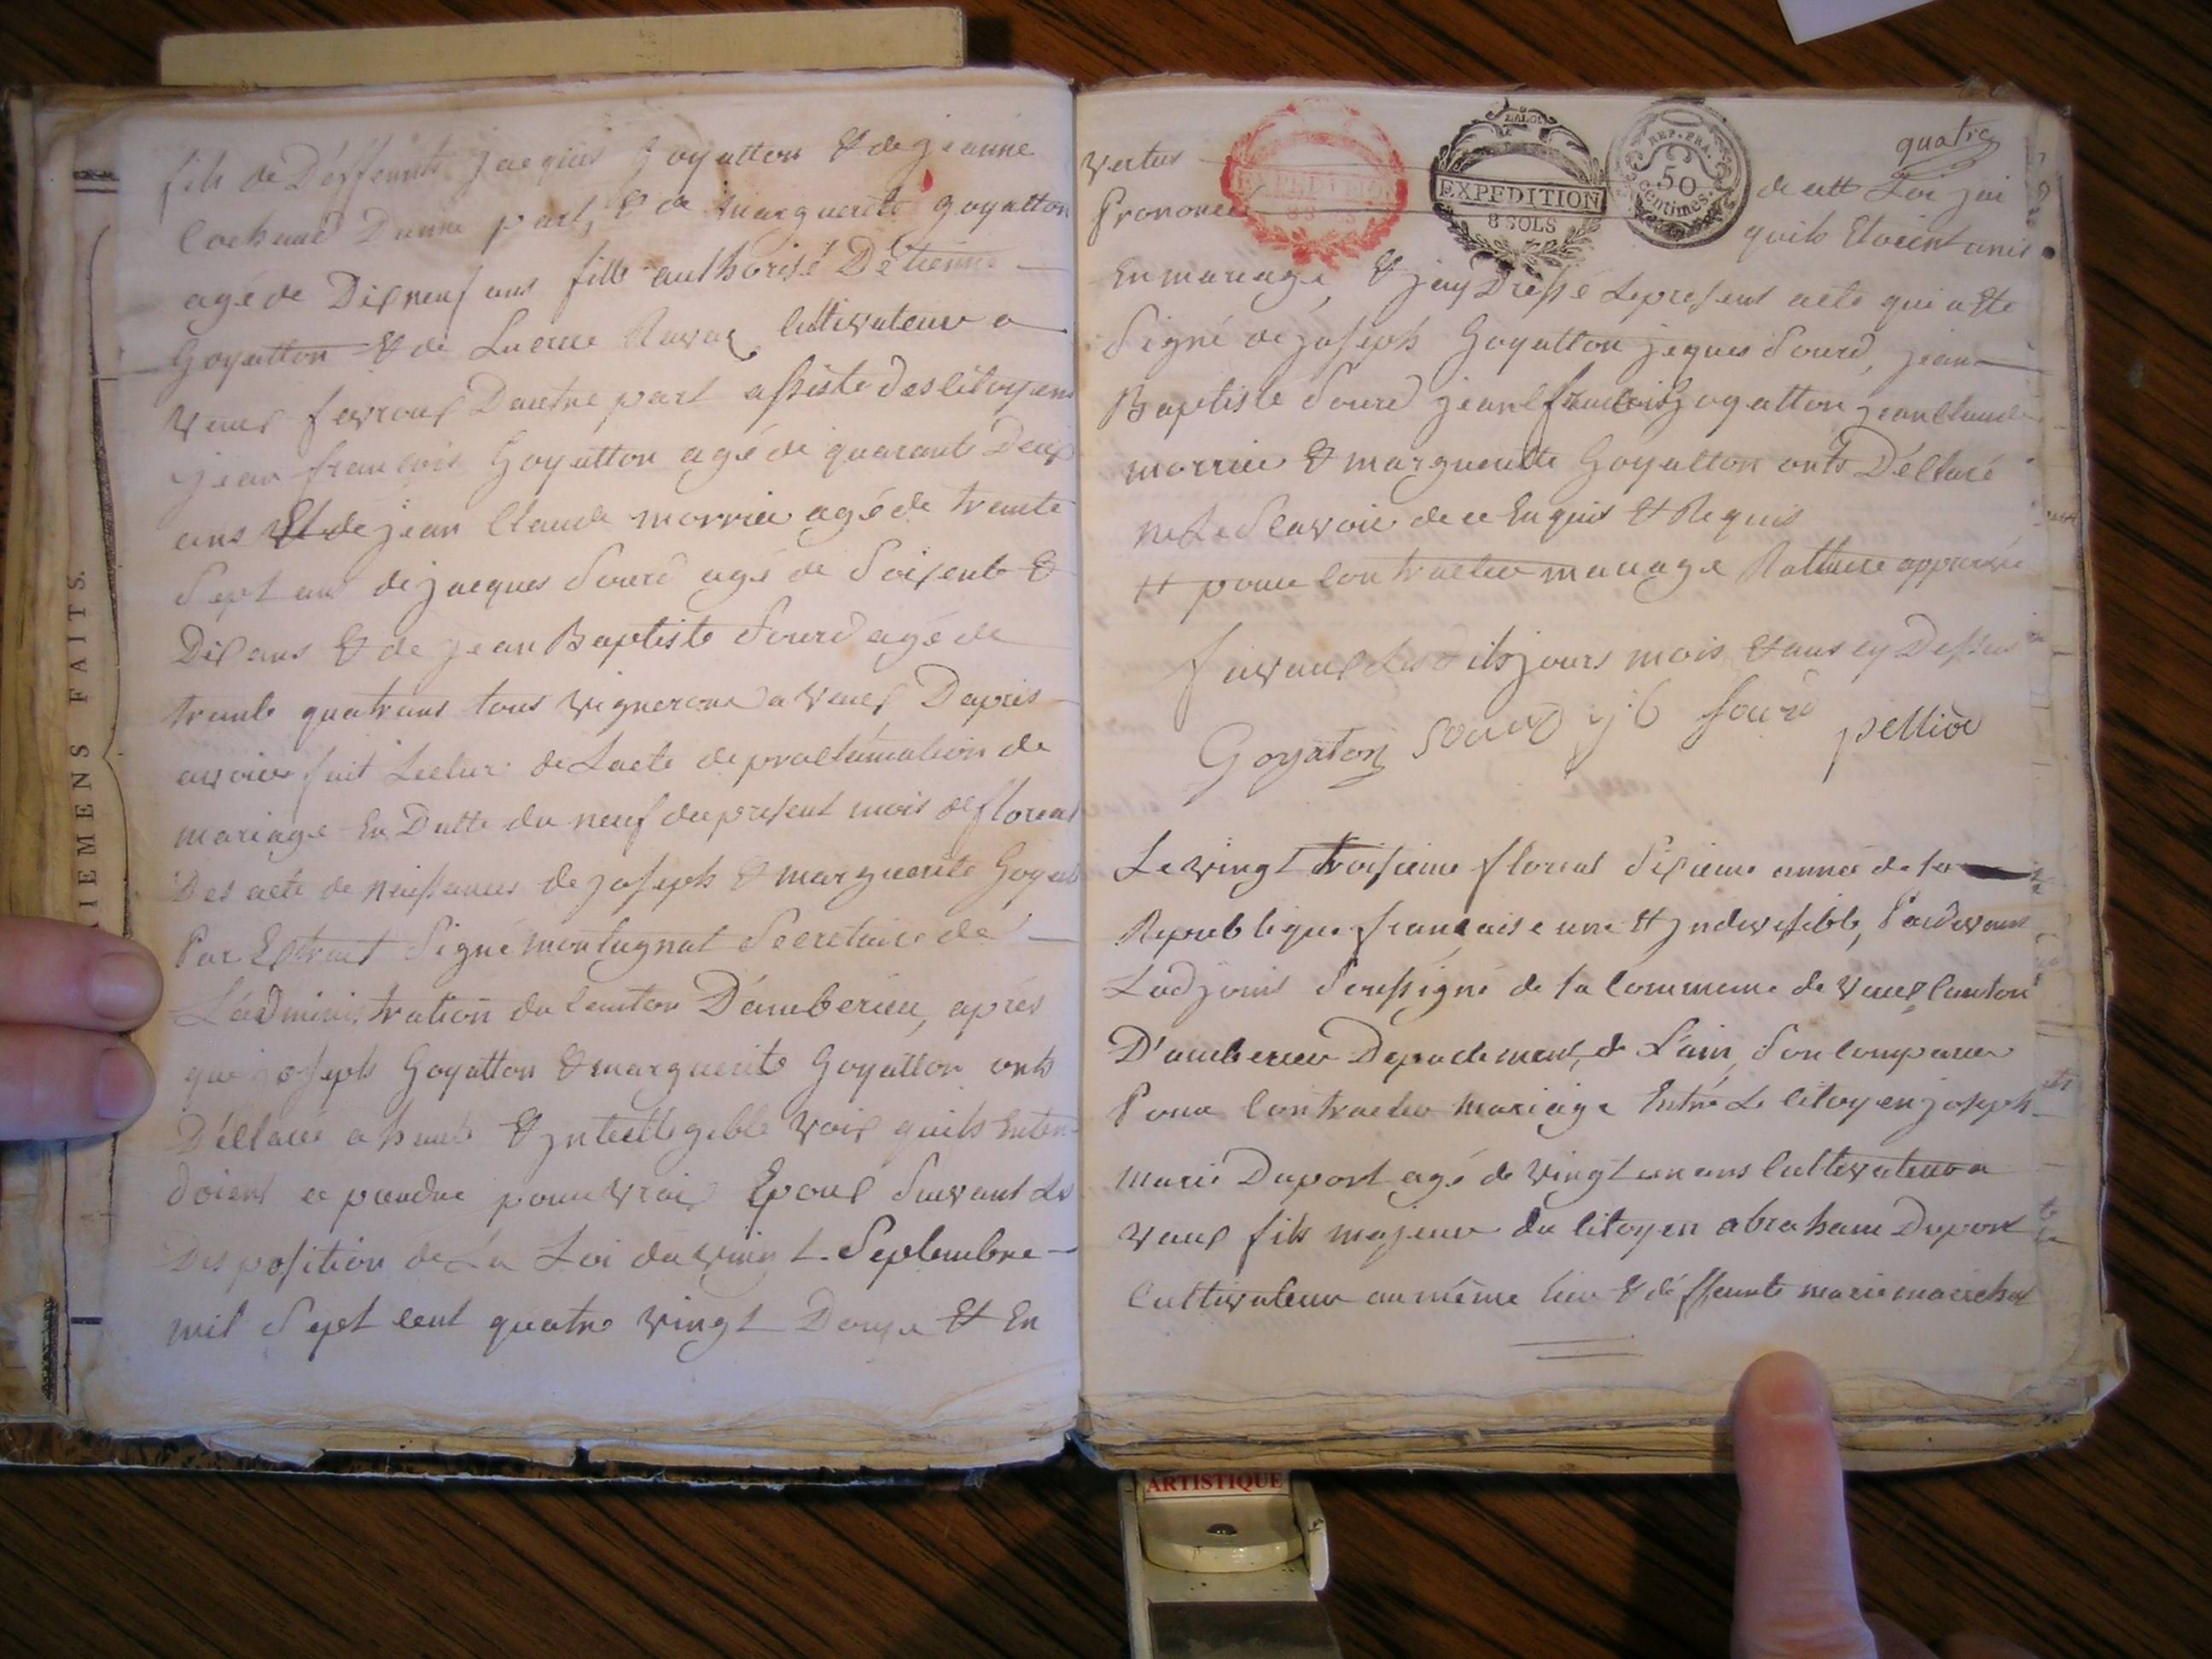 fils de Deffeunt jacques Goyatton & de jeanne
Cochaud Dunne part, & de marguerite goyatton
agé de Dixneuf ans fille authorisé Détienne
Goyatton & de Lucrece Ravaz Cultivateur a
Vaux fevroux Dautre part assisté des Citoyens
jean francois Goyatton agé de quarante Deux
ans Et de jean Claude morrier agé de trente
Sept ans de jacques Sourd agé de Soisente &
Dix ans & de jean Baptiste Sourd agé de
trente quatrans tous vignerons a Vaux, Dapres
avoir fait Lecture de Lacte de proclamation de
mariage En Datte du neuf du present mois de floreal
Des acte de naissances de joseph & marguerite Goyat
Par Extrait Signé montagnat Secretaire de
L'administration du Canton D'amberieu, après
que joseph Goyatton & marguerite Goyatton onts
Déllaré a haute & jntellegible voix quils Enten
doient ce prendre pour vrai Epoux Suivant Les
Disposition de La Loi du vingt Septembre
mil Sept cent quatre vingt Douze & En
quatre
vertus de cett Loi jai
Prononcé quils Etoient unis
En mariage, & jay Dressé Le present acte qui a Ete
Signé de joseph Goyatton jeques Sourd, jean
Baptiste Sourd jean francois goyatton jean Claude
morrier & margueritte Goyatton onts Déllaré
ne Le Scavoir de ce Enquis & Requis
Et pour Contracter mariage Rature approuvé
f a vaux Les dits jours mois & ans cy Dessus
Goyaton Sourd j b Sourd pellior
Le vingt troisieme floreal Sixieme anneé de la
Republique francaise une Et jndivisible, Pardevant
Ladjoint Soussigné de la Commune de vaux Canton
D'amberieu Departement de L'ain, Son Comparus
Pour Contracter mariage Entré Le Citoyen joseph
marie Duport agé de vingt un ans Cultivateur a
vaux fils majeur du Citoyen abraham Duport
Cultivateur au méme lieu & de deffeunte marie marechal
EXPEDITION
8 SOLS
EXPEDITION
8 SOLS
LA LOI
REP. FRA.
50
centimes.
RIEMENS FAITS.
ARTISTIQUE